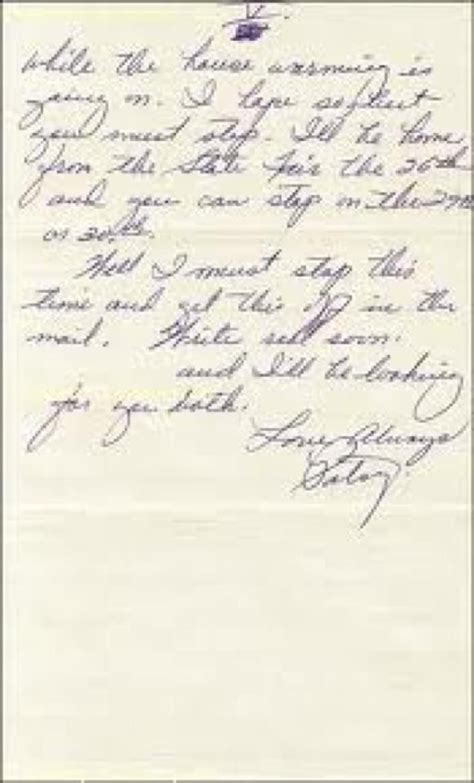 V.
while the house warming is
going on. I hope
you must stop. I'll be home
from the State Fair the 26th
and you can stop on the 29th
or 30.th.
Well I must stop this
time and get this off in the
mail. Write real soon.
and I'll be looking
for you both.
Love Always
Patsy.